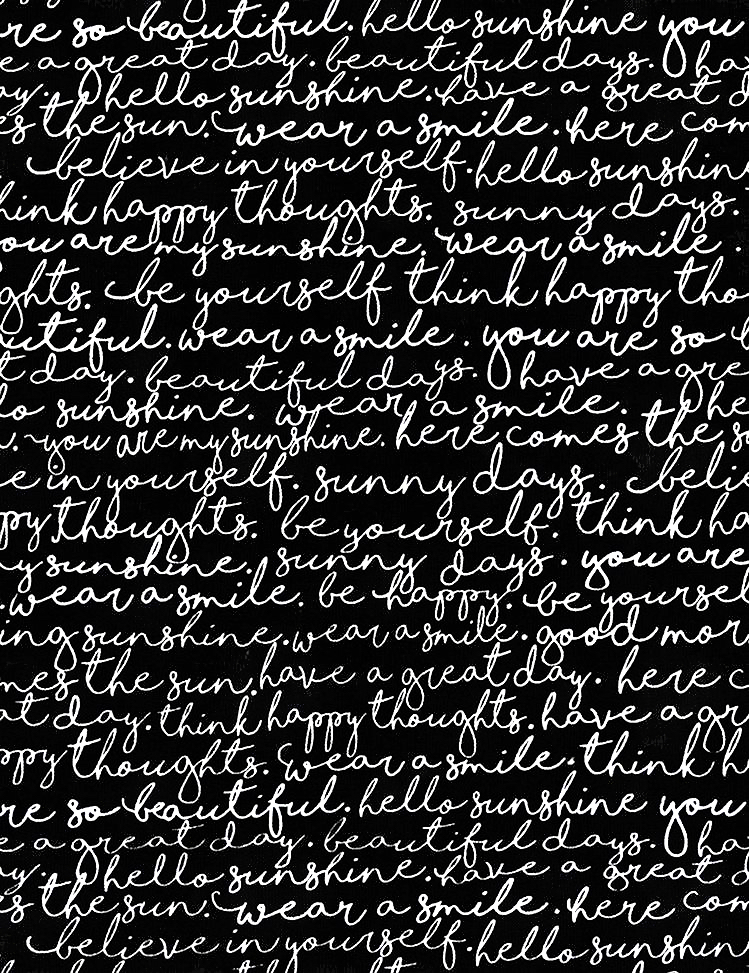 re so beautiful. hello sunshine you
e a great day. beautiful days. ha
ay. hello sunshine. have a great d
es the sun. wear a smile. here com
believe in yourself. hello sunshin
hink happy thoughts. sunny days.
ou are my sunshine. wear a smile.
ghts. be yourself think happy tho
utiful. wear a smile. you are so b
t day. beautiful days. have a gre
lo sunshine. wear a smile. he
. you are my sunshine. here comes the s
e in yourself. sunny days. belie
ppy thoughts. be yourself. think ha
y sunshine. sunny days. you are
. wear a smile. be happy. be yoursel
ing sunshine. wear a smile. good mor
mes the sun. have a great day. here c
at day. think happy thoughts. have a gr
ppy thoughts. wear a smile. think h
re so beautiful. hello sunshine you
e a great day. beautiful days. ha
ay. hello sunshine. have a great d
es the sun. wear a smile. here com
believe in yourself. hello sunshin